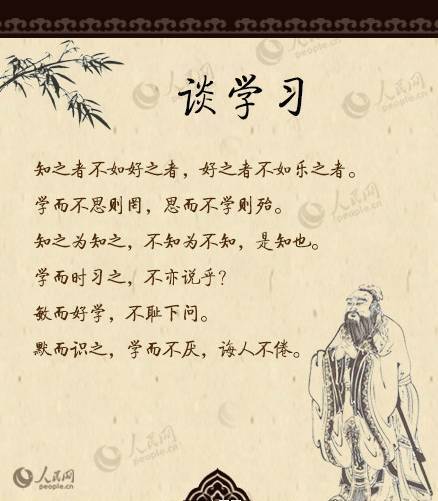 人民网
people.cn
人民网
people.cn
谈学习
知之者不如好之者，好之者不如乐之者。
学而不思则罔，思而不学则殆。
知之为知之，不知为不知，是知也。
学而时习之，不亦说乎？
敏而好学，不耻下问。
默而识之，学而不厌，诲人不倦。
人民网
people.cn
人民网
people.cn